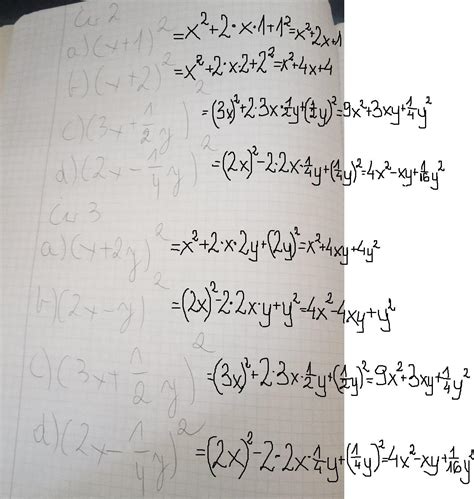 Ćw 2
a) (x+1)² = x²+2·x·1+1² = x²+2x+1
b) (x+2)² = x²+2·x·2+2² = x²+4x+4
c) (3x+½y)² = (3x)²+2·3x·½y+(½y)² = 9x²+3xy+¼y²
d) (2x-¼y)² = (2x)²-2·2x·¼y+(¼y)² = 4x²-xy+1/16y²
Ćw 3
a) (x+2y)² = x²+2·x·2y+(2y)² = x²+4xy+4y²
b) (2x-y)² = (2x)²-2·2x·y+y² = 4x²-4xy+y²
c) (3x+½y)² = (3x)²+2·3x·½y+(½y)² = 9x²+3xy+¼y²
d) (2x-¼y)² = (2x)²-2·2x·¼y+(¼y)² = 4x²-xy+1/16y²